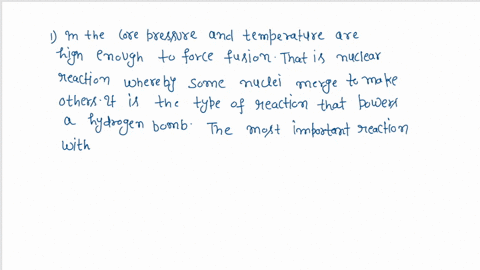 1) In the core pressure and temperature are
high enough to force fusion. That is nuclear
reaction whereby some nuclei merge to make
others. It is the type of reaction that powers
a hydrogen bomb. The most important reaction
with